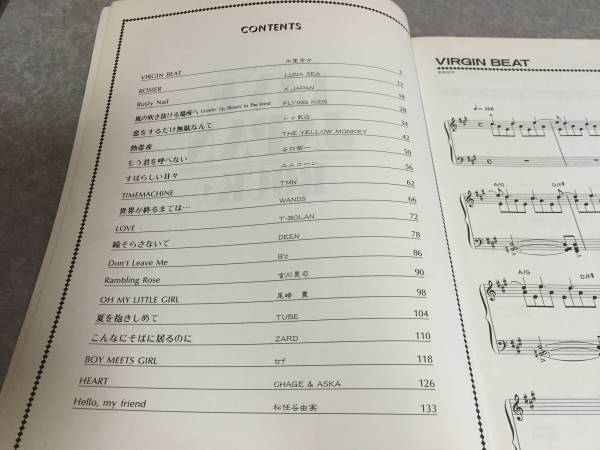 CONTENTS
VIRGIN BEAT 氷室京介 5
ROSIER LUNA SEA 12
Rusty Nail X JAPAN 18
風の吹き抜ける場所へ Growin' Up, Blowin' In The Wind FLYING KIDS 28
恋をするだけ無駄なんて シャ乱Q 34
熱帯夜 THE YELLOW MONKEY 42
もう君を呼べない 谷口崇一 50
すばらしい日々 ユニコーン 56
TIMEMACHINE TMN 62
世界が終るまでは… WANDS 66
LOVE T-BOLAN 72
瞳そらさないで DEEN 78
Don't Leave Me B'z 86
Rambling Rose 吉川晃司 90
OH MY LITTLE GIRL 尾崎 豊 98
夏を抱きしめて TUBE 104
こんなにそばに居るのに ZARD 110
BOY MEETS GIRL trf 118
HEART CHAGE & ASKA 126
Hello, my friend 松任谷由実 133
VIRGIN BEAT
A/G D/F#
A/G D/F#